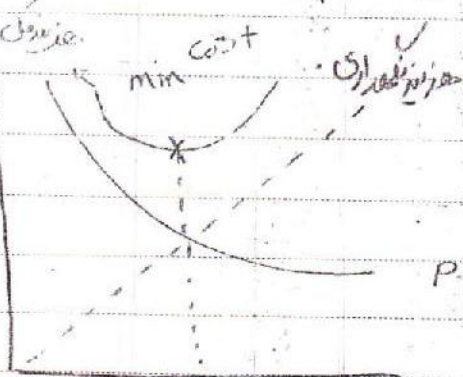 هزینه کل
min cost
هزینه نگهداری
P